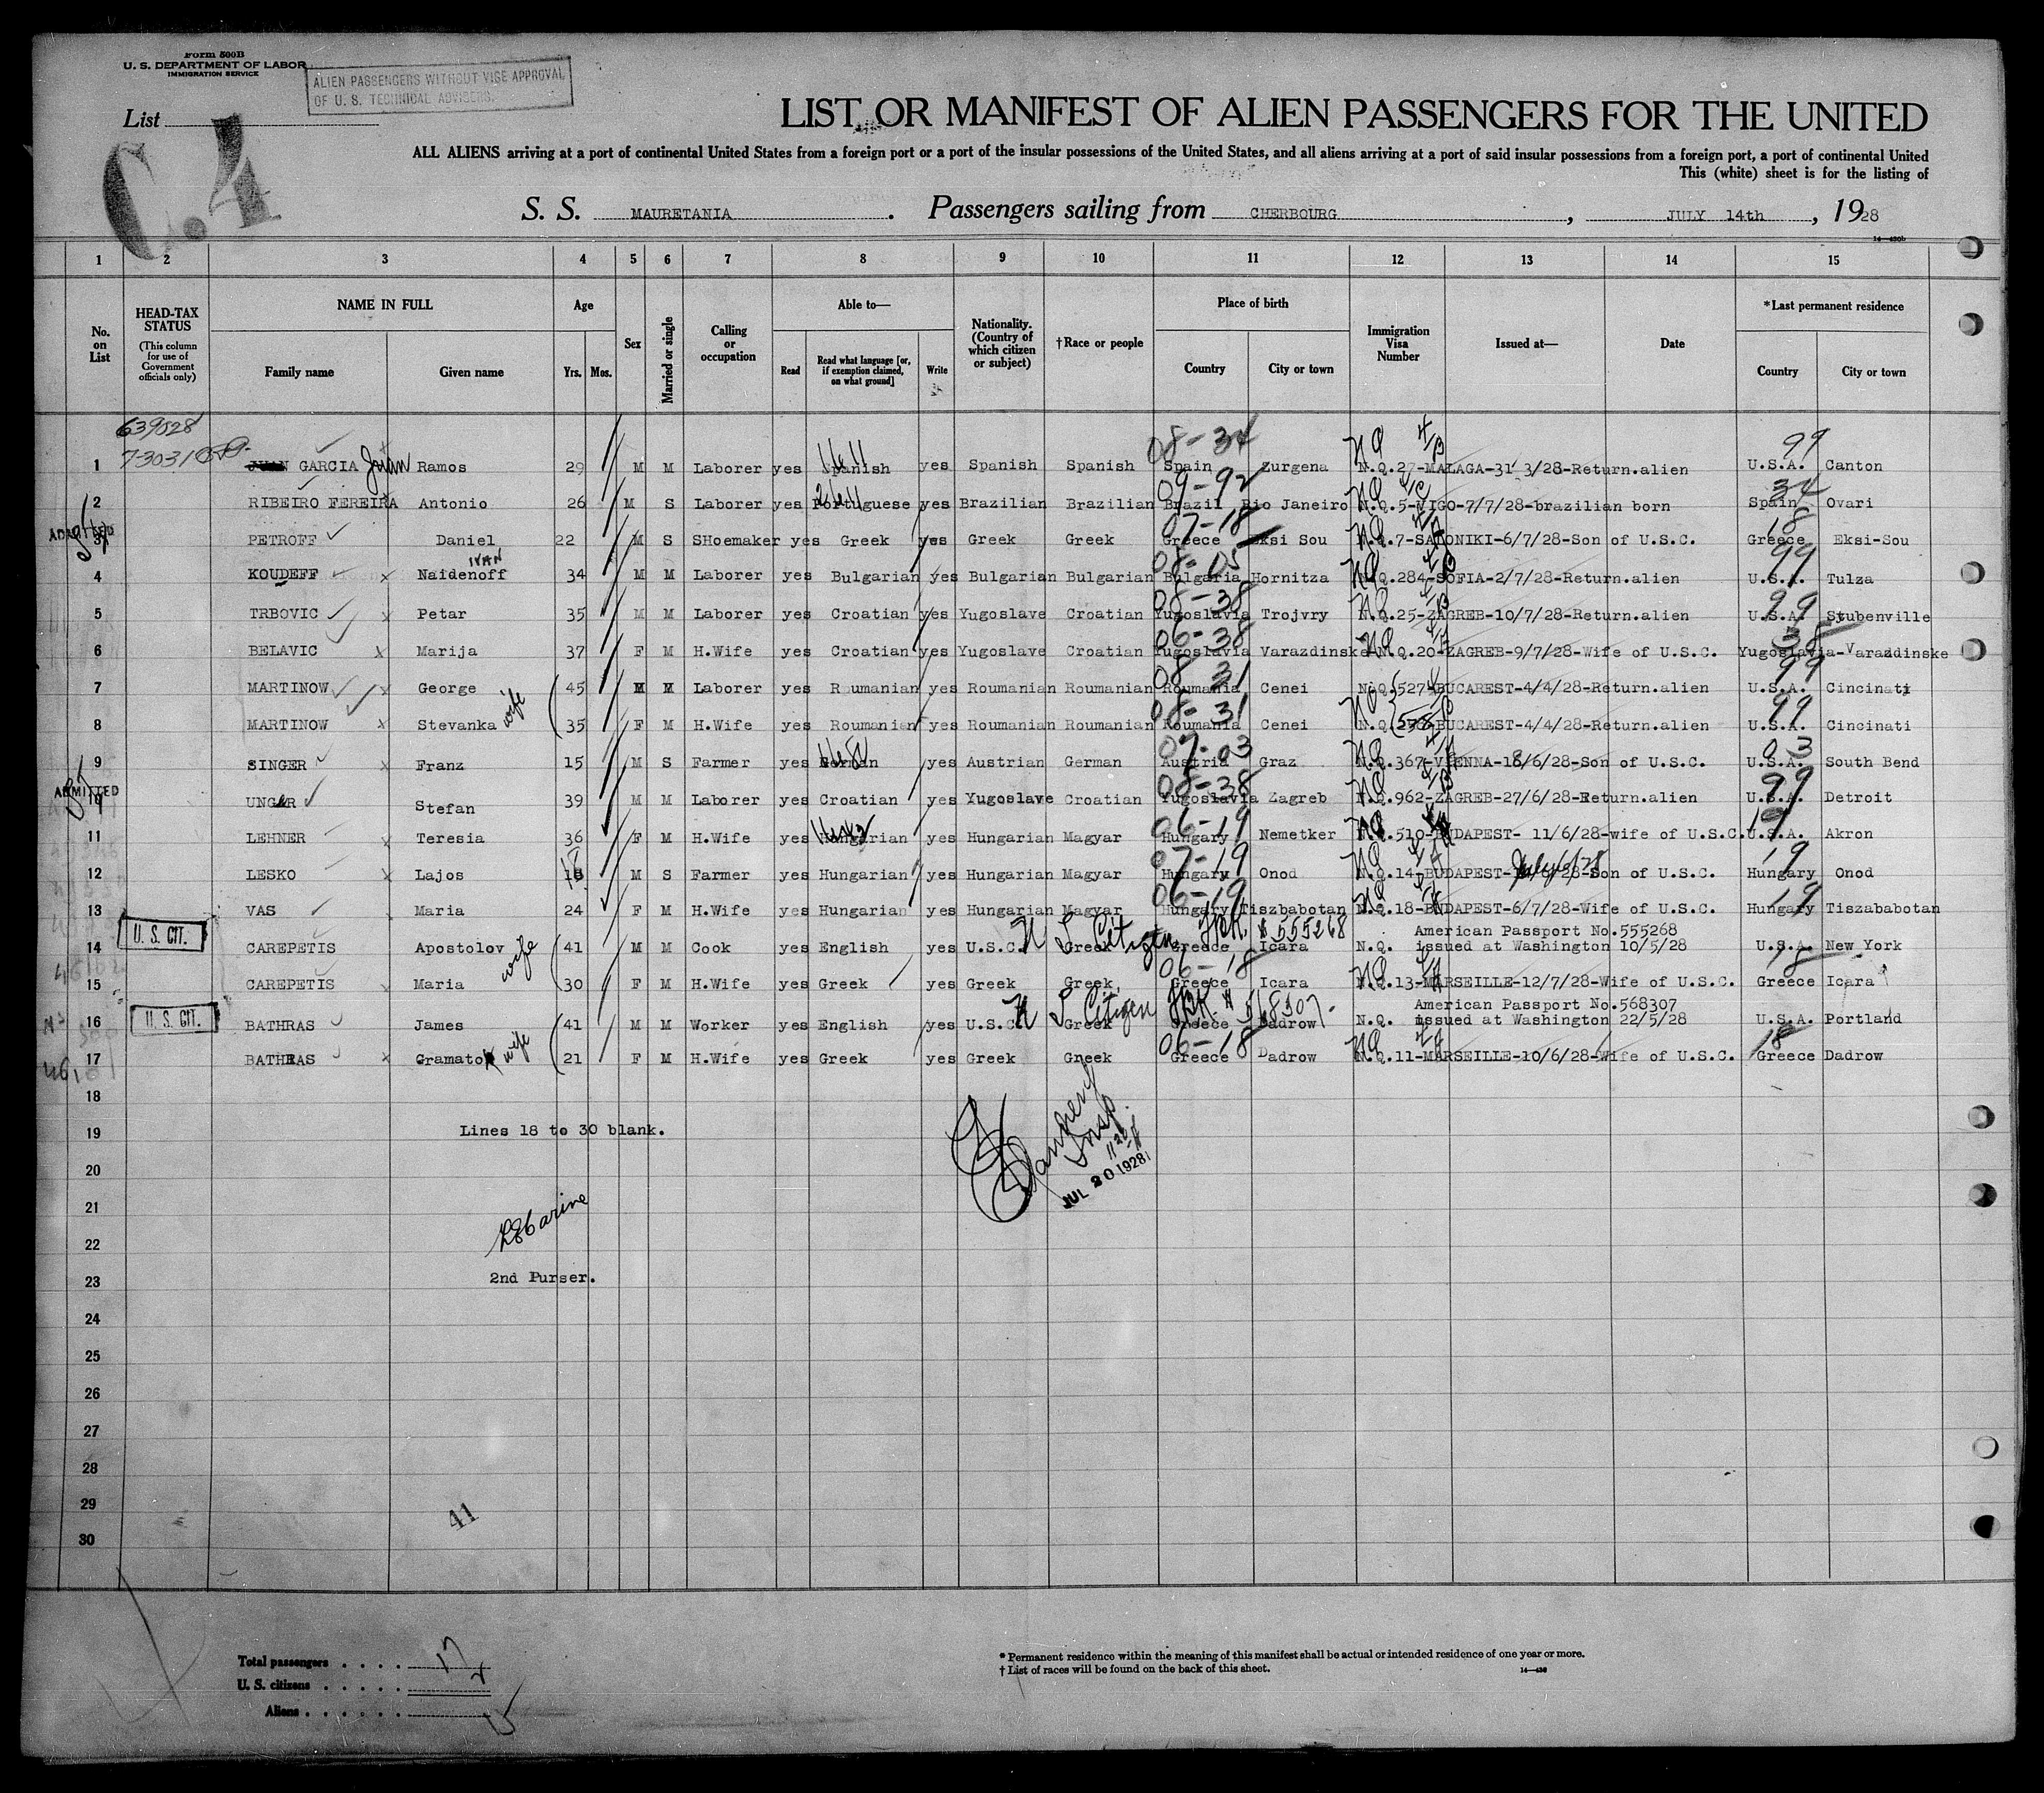 Form 500B
U. S. DEPARTMENT OF LABOR
IMMIGRATION SERVICE
ALIEN PASSENGERS WITHOUT VISE APPROVAL
OF U. S. TECHNICAL ADVISERS.
List
C.4
LIST OR MANIFEST OF ALIEN PASSENGERS FOR THE UNITED
ALL ALIENS arriving at a port of continental United States from a foreign port or a port of the insular possessions of the United States, and all aliens arriving at a port of said insular possessions from a foreign port, a port of continental United
This (white) sheet is for the listing of
S. S. MAURETANIA. Passengers sailing from CHERBOURG, JULY 14th, 1928
14—430b
1 2 3 4 5 6 7 8 9 10 11 12 13 14 15
No. on List
HEAD-TAX STATUS (This column for use of Government officials only)
NAME IN FULL Family name Given name
Age Yrs. Mos.
Sex
Married or single
Calling or occupation
Able to— Read Read what language [or, if exemption claimed, on what ground] Write
Nationality. (Country of which citizen or subject)
†Race or people
Place of birth Country City or town
Immigration Visa Number
Issued at—
Date
*Last permanent residence Country City or town
639028
1 JUAN GARCIA Juan Ramos 29 M M Laborer yes Spanish yes Spanish Spanish 08-34 Spain Zurgena NQ N.Q.27-MALAGA-31 3/28-Return.alien 99 U.S.A. Canton
2 RIBEIRO FEREIRA Antonio 26 M S Laborer yes Portuguese yes Brazilian Brazilian 09-92 Brazil Rio Janeiro NQ N.Q.5-VIGO-7/7/28-brazilian born 34 Spain Ovari
ADMITTED
3 PETROFF Daniel 22 M S SHoemaker yes Greek yes Greek Greek 07-18 Greece Eksi Sou NQ N.Q.7-SALONIKI-6/7/28-Son of U.S.C. 18 Greece Eksi-Sou
4 KOUDEFF IVAN Naidenoff 34 M M Laborer yes Bulgarian yes Bulgarian Bulgarian 08-05 Bulgaria Hornitza NQ N.Q.284-SOFIA-2/7/28-Return.alien 99 U.S.A. Tulza
5 TRBOVIC Petar 35 M M Laborer yes Croatian yes Yugoslave Croatian 08-38 Yugoslavia Trojvry NQ N.Q.25-ZAGREB-10/7/28-Return.alien 99 U.S.A. Stubenville
6 BELAVIC Marija 37 F M H.Wife yes Croatian yes Yugoslave Croatian 06-38 Yugoslavia Varazdinske NQ N.Q.20-ZAGREB-9/7/28-Wife of U.S.C. 38 Yugoslavia-Varazdinske
7 MARTINOW George 45 M M Laborer yes Roumanian yes Roumanian Roumanian 08 31 Roumania Cenei N.Q.527-BUCAREST-4/4/28-Return.alien 99 U.S.A. Cincinati
8 MARTINOW Stevanka wife 35 F M H.Wife yes Roumanian yes Roumanian Roumanian 08-31 Roumania Cenei NQ N.Q. BUCAREST-4/4/28-Return.alien 99 U.S.A. Cincinati
9 SINGER Franz 15 M S Farmer yes German yes Austrian German 07-03 Austria Graz NQ N.Q.367-VIENNA-18/6/28-Son of U.S.C. 03 U.S.A. South Bend
ADMITTED
10 UNGER Stefan 39 M M Laborer yes Croatian yes Yugoslave Croatian 08-38 Yugoslavia Zagreb NQ N.Q.962-ZAGREB-27/6/28-Return.alien 99 U.S.A. Detroit
11 LEHNER Teresia 36 F M H.Wife yes Hungarian yes Hungarian Magyar 06-19 Hungary Nemetker NQ N.Q.510-BUDAPEST- 11/6/28-wife of U.S.C. 19 U.S.A. Akron
12 LESKO Lajos 18 M S Farmer yes Hungarian yes Hungarian Magyar 07-19 Hungary Onod NQ N.Q.14-BUDAPEST- July 6/28 Son of U.S.C. 19 Hungary Onod
13 VAS Maria 24 F M H.Wife yes Hungarian yes Hungarian Magyar 06-19 Hungary Tiszbabotan NQ N.Q.18-BUDAPEST-6/7/28-Wife of U.S.C. 19 Hungary Tiszababotan
U. S. CIT.
U S Citizen # 555268 American Passport No.555268
14 CAREPETIS Apostolov 41 M M Cook yes English yes U.S.C. Greek Greece Icara N.Q. issued at Washington 10/5/28 U.S.A. New York
15 CAREPETIS Maria wife 30 F M H.Wife yes Greek yes Greek Greek 06-18 Greece Icara NQ N.Q.13-MARSEILLE-12/7/28-Wife of U.S.C. 18 Greece Icara
U. S. CIT.
U S Citizen # 568307 American Passport No.568307
16 BATHRAS James 41 M M Worker yes English yes U.S.C. Greek Greece Dadrow N.Q. issued at Washington 22/5/28 U.S.A. Portland
17 BATHRAS Gramato wife 21 F M H.Wife yes Greek yes Greek Greek 06-18 Greece Dadrow NQ N.Q.11-MARSEILLE-10/6/28-Wife of U.S.C. 18 Greece Dadrow
18
19 Lines 18 to 30 blank.
Insp.
JUL 20 1928
20
21
22
23 2nd Purser.
24
25
26
27
28
29
41
30
Total passengers . . . . 17
U. S. citizens . . . . . 2
Aliens . . . . . . 15
* Permanent residence within the meaning of this manifest shall be actual or intended residence of one year or more.
† List of races will be found on the back of this sheet.
14—430